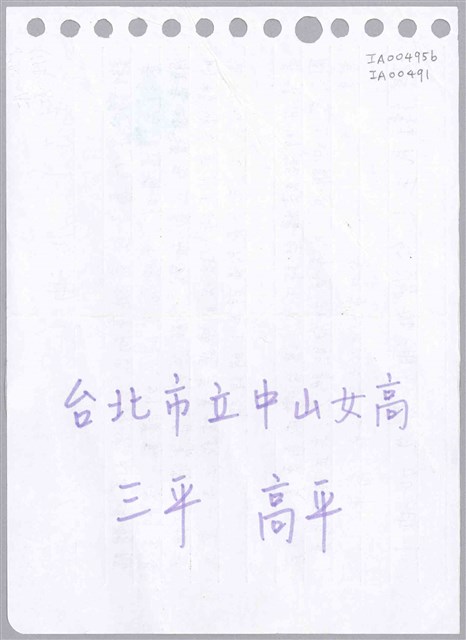 IA00495b
IA00491
台北市立中山女高
三平 高平